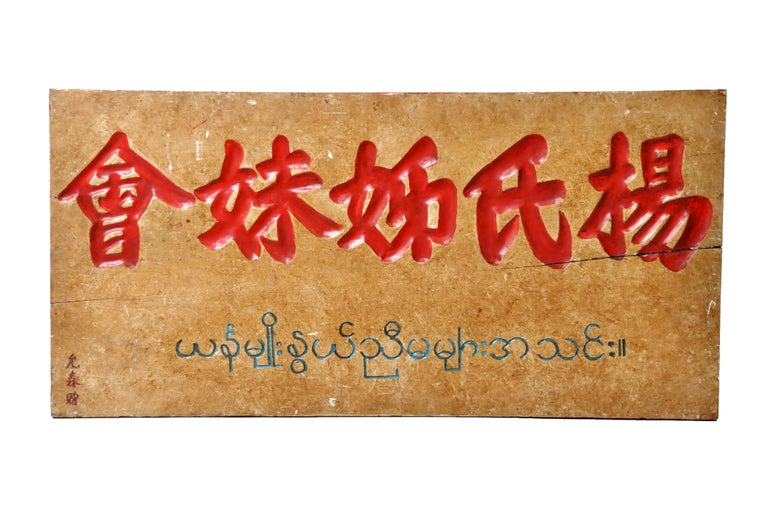 楊氏姊妹會
ယန်မျိုးနွယ်ညီမများအသင်း။
允森贈